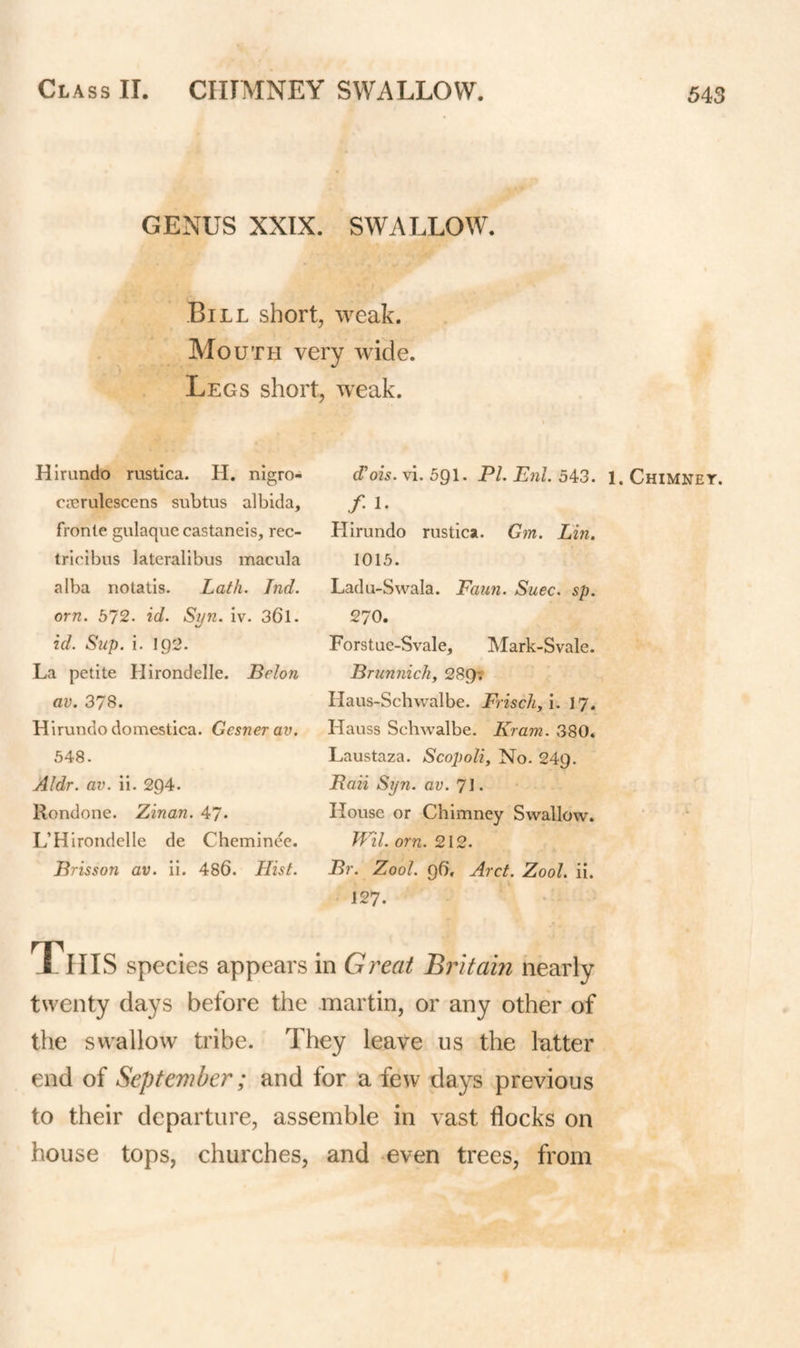 Class II. CHIMNEY SWALLOW. 543
GENUS XXIX. SWALLOW.
Bill short, weak.
Mouth very wide.
Legs short, weak.
Hirundo rustica. H. nigro-
cærulescens subtus albida,
fronte gulaque castaneis, rec-
tricibus lateralibus macula
alba notatis. Lath. Ind.
orn. 572. id. Syn. iv. 361.
id. Sup. i. 192.
La petite Hirondelle. Belon
av. 378.
Hirundo domestica. Gesner av.
548.
Aldr. av. ii. 294.
Rondone. Zinan. 47.
L'Hirondelle de Cheminée.
Brisson av. ii. 486. Hist.
d'ois. vi. 591. Pl. Enl. 543.
f. 1.
Hirundo rustica. Gm. Lin.
1015.
Ladu-Swala. Faun. Suec. sp.
270.
Forstue-Svale, Mark-Svale.
Brunnich, 289.
Haus-Schwalbe. Frisch, i. 17.
Hauss Schwalbe. Kram. 380.
Laustaza. Scopoli, No. 249.
Raii Syn. av. 71.
House or Chimney Swallow.
Wil. orn. 212.
Br. Zool. 96. Arct. Zool. ii.
127.
1. Chimney.
This species appears in Great Britain nearly
twenty days before the martin, or any other of
the swallow tribe. They leave us the latter
end of September; and for a few days previous
to their departure, assemble in vast flocks on
house tops, churches, and even trees, from